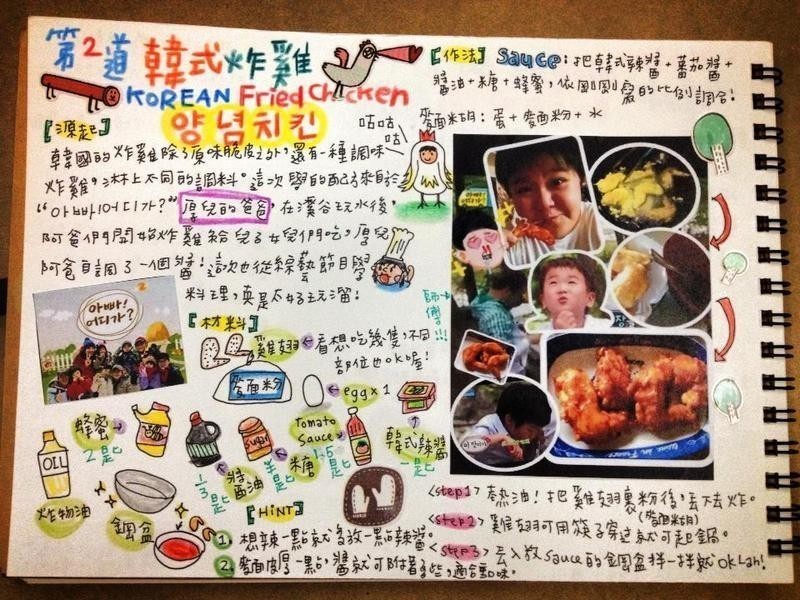 第2道 韓式炸雞
KOREAN Fried Chicken
양념치킨
[源起]
韓國的炸雞除了原味脆皮之外,還有一種調味
炸雞,淋上不同的調料。這次學的配方來自於
"아빠!어디가?" 厚兒的爸爸, 在溪谷玩水後,
阿爸們開始炸雞給兒子女兒們吃,厚兒
阿爸自調了一個醬!這次也從綜藝節目學
料理,真是太好玩溜!
咕咕
咕
師傅!!!
아빠!
어디가?
[材料]
雞翅 ← 看想吃幾隻,不同
部位也OK喔!
麥面粉
egg x 1
蜂蜜
2匙
OIL
炸物油
鋼盆
醬油
1/3匙
SUGAR
糖
半匙
Tomato
Sauce
1.5
匙
韓式辣醬
一匙
[HiNT]
1. 想辣一點就多放一點辣醬。
2. 麥面皮厚一點,醬就可附著多些,適合重口味。
[作法] Sauce:把韓式辣醬+蕃茄醬+
醬油+糖+蜂蜜,依剛剛寫的比例調合!
麥面糊:蛋+麥面粉+水
<step1> 熱油!把雞翅裹粉後,丟下去炸。
(麥面糊)
<step2> 雞翅可用筷子穿過就可起鍋。
<step3> 丟入放sauce的鋼盆拌一拌就OK Lah!